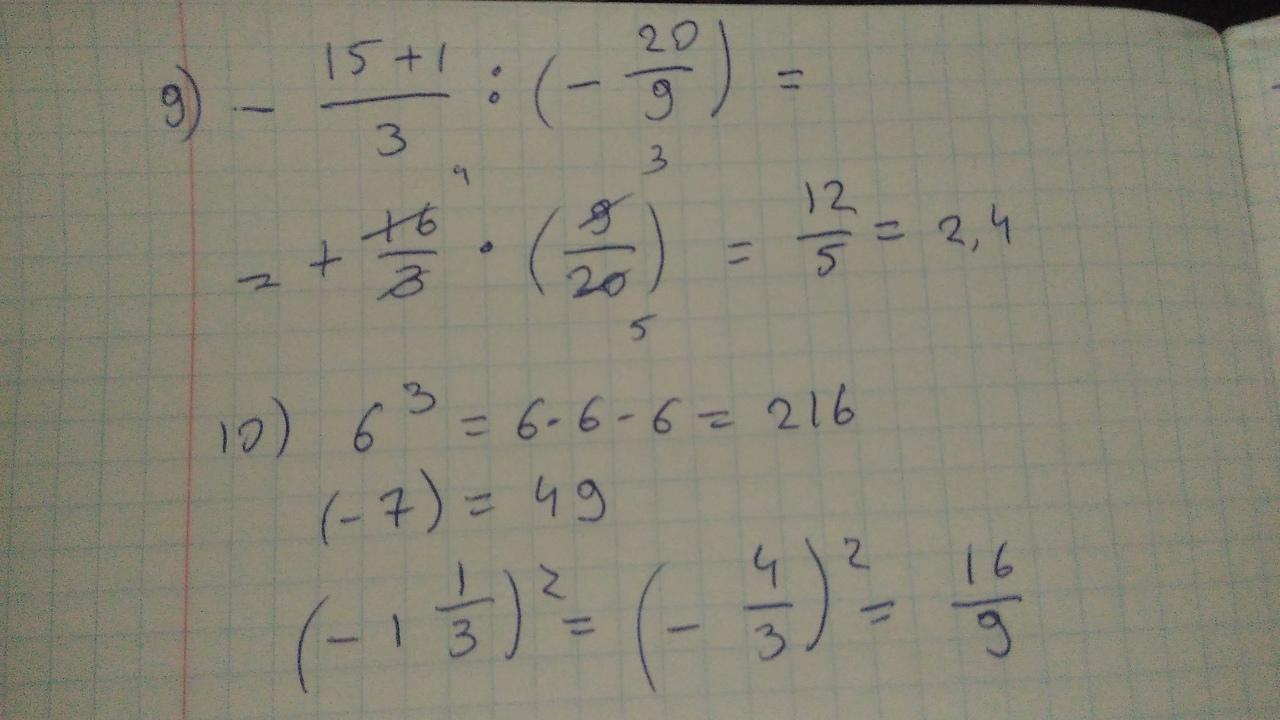 9) - (15+1)/3 : (- 20/9) =
= + 16/3 · (9/20) = 12/5 = 2,4
4 3 5
10) 6³ = 6·6·6 = 216
(-7) = 49
(-1 1/3)² = (- 4/3)² = 16/9